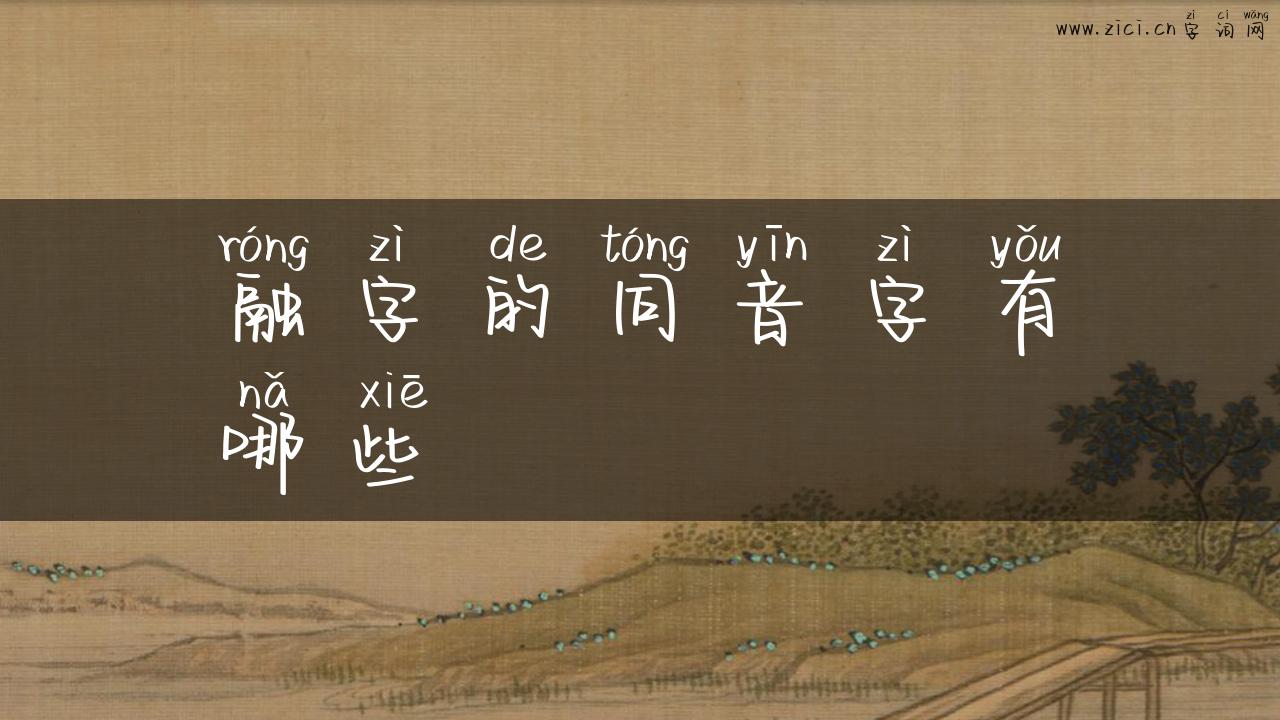 zì cí wǎng
www.zici.cn 字 词 网
róng zì de tóng yīn zì yǒu
融 字 的 同 音 字 有
nǎ xiē
哪 些